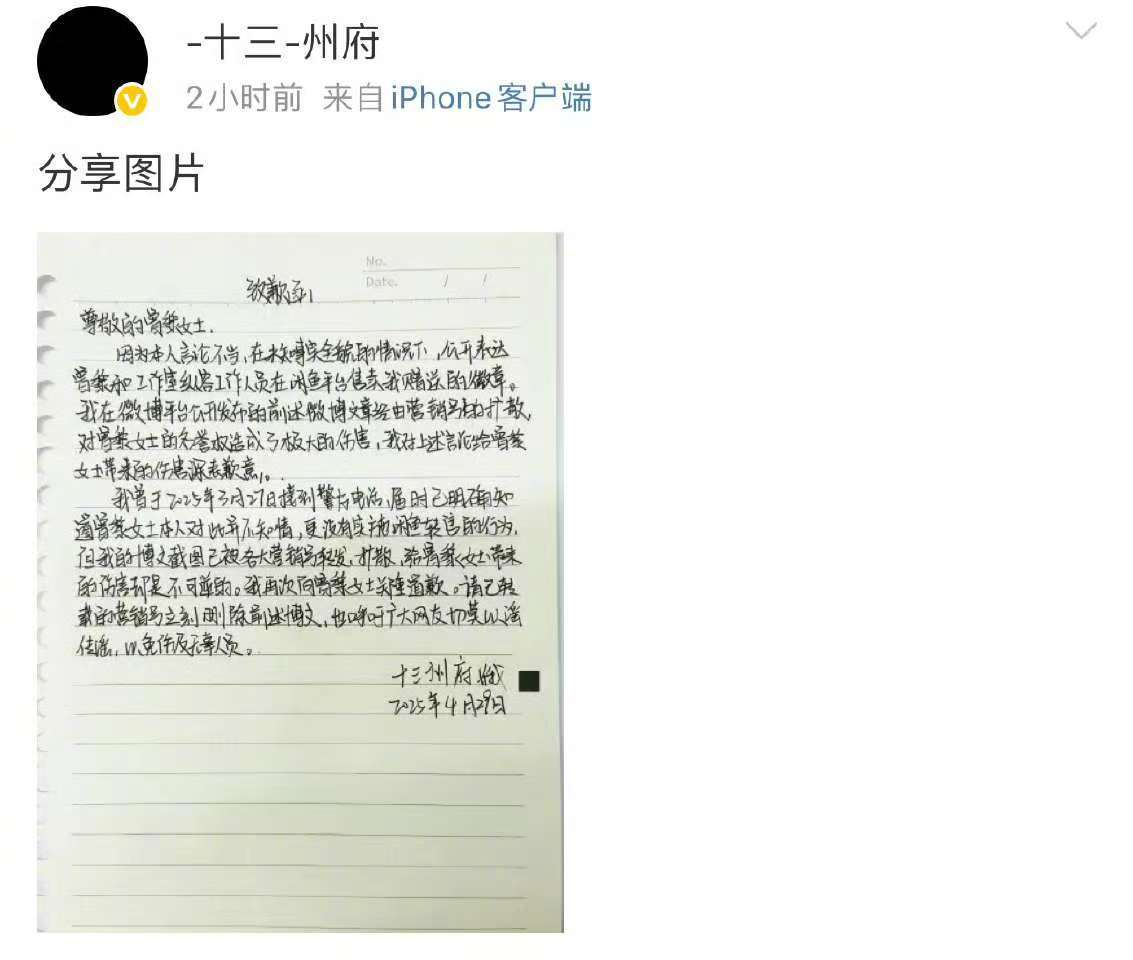 -十三-州府
2小时前 来自 iPhone客户端
分享图片
No.
Date. / /
致歉函
尊敬的曾黎女士.
因为本人言论不当,在未核实全貌的情况下,公开表达
曾黎和工作室纵容工作人员在闲鱼平台售卖我赠送的徽章。
我在微博平台公开发布的前述微博文章经由营销号的扩散,
对曾黎女士的名誉权造成了极大的伤害,我对上述言论给曾黎
女士带来的伤害深表歉意。
我曾于2025年3月27日接到警方电话,届时已明确知
道曾黎女士本人对此并不知情,更没有实施闲鱼转售的行为,
但我的博文截图已被各大营销号转发、扩散,给曾黎女士带来
的伤害却是不可逆的。我再次向曾黎女士郑重道歉。请已转
载的营销号立刻删除前述博文,也呼吁广大网友切莫以谣
传谣,以免伤及无辜人员。
十三州府
2025年4月29日